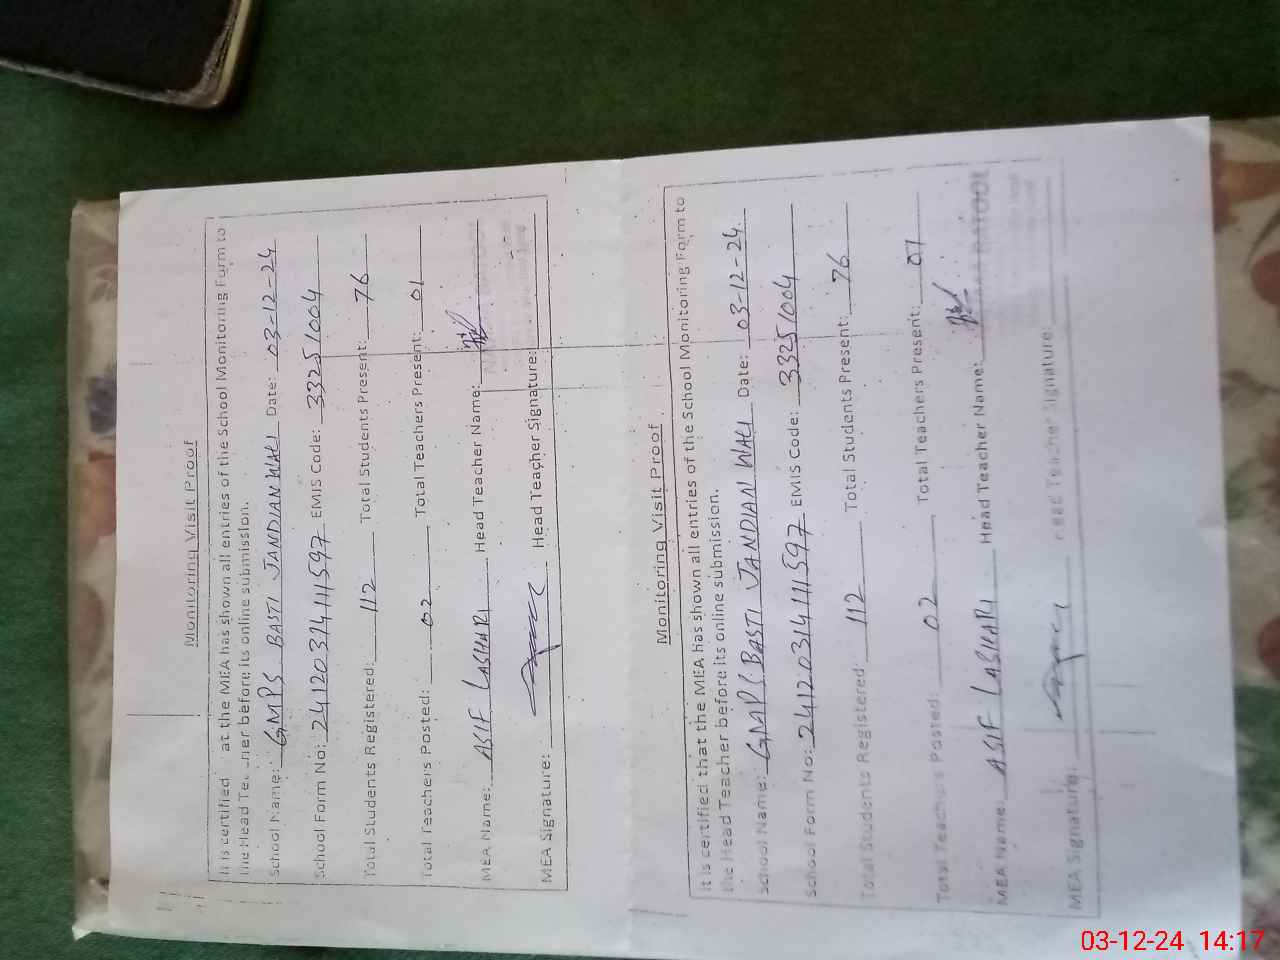 Monitoring Visit Proof
It is certified at the MEA has shown all entries of the School Monitoring Form to
the Head Teacher before its online submission.
School Name: GMPS BASTI JANDIAN WALI Date: 03-12-24
School Form No: EMIS Code: 33251004
Total Students Registered: 112 Total Students Present: 76
Total Teachers Posted: 02 Total Teachers Present: 01
MEA Name: ASIF LASHARI Head Teacher Name:
MEA Signature: Head Teacher Signature:
Monitoring Visit Proof
It is certified that the MEA has shown all entries of the School Monitoring Form to
the Head Teacher before its online submission.
School Name: GMPS BASTI JANDIAN WALI Date: 03-12-24
School Form No: EMIS Code: 33251004
Total Students Registered: 112 Total Students Present: 76
Total Teachers Posted: 02 Total Teachers Present: 01
MEA Name: ASIF LASHARI Head Teacher Name:
MEA Signature: Head Teacher Signature:
03-12-24 14:17